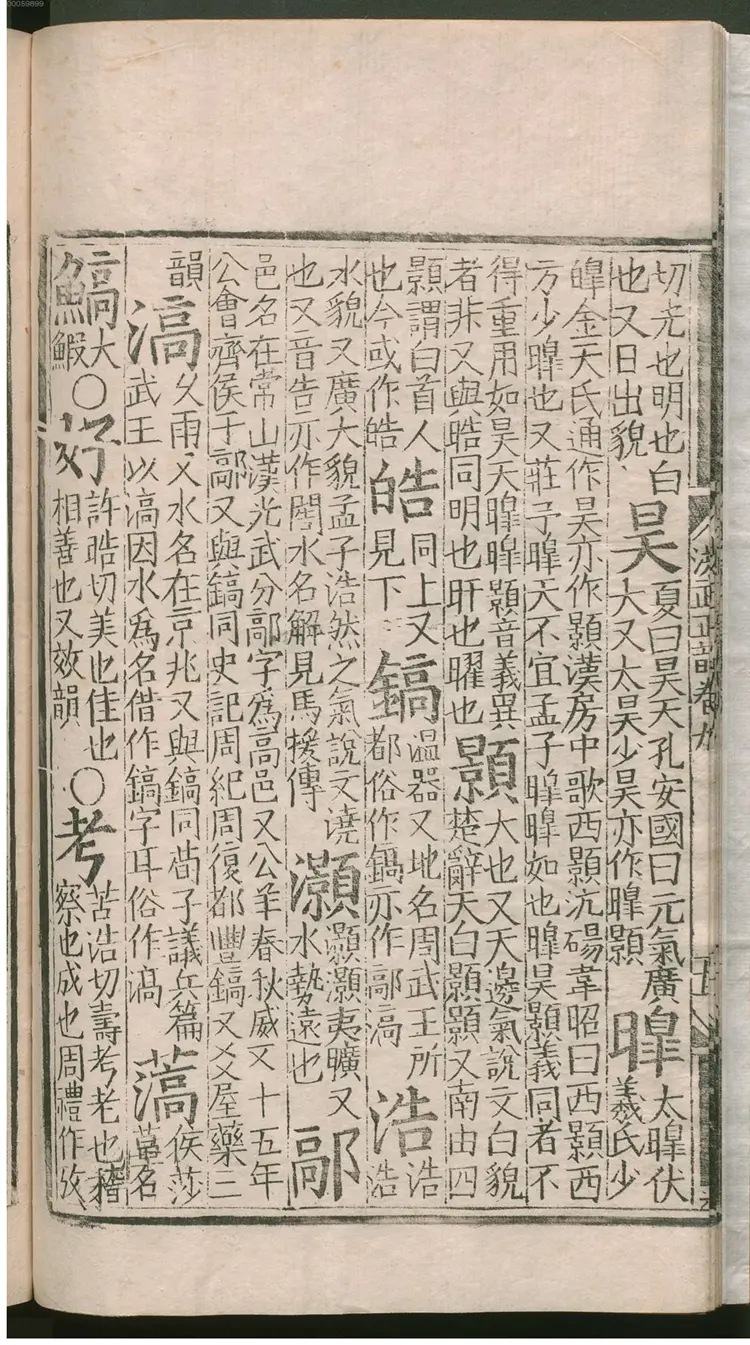 00059899
洪武正韻卷九
五
切光也明也白
也又日出貌
昊
夏曰昊天孔安國曰元氣廣
大又太昊少昊亦作暤顥
暤
太暤伏
羲氏少
皡金天氏通作昊亦作顥漢房中歌西顥沆碭韋昭曰西顥西
方少暤也又莊子暤天不宜孟子暤暤如也暤昊顥義同者不
得重用如昊天暤暤顥音義異
者非又與晧同明也旰也曜也
顥
大也又天邊氣說文白貌
楚辭天白顥顥又南由四
顥謂白首人
也今或作皓
皓
同上又
見下
鎬
溫器又地名周武王所
都俗作鎬亦作鄗滈
浩
浩
浩
水貌又廣大貌孟子浩然之氣說文澆
也又音告亦作閤水名解見馬援傳
灝
灝灝夷曠又
水勢遠也
鄗
邑名在常山漢光武分鄗字爲高邑又公羊春秋威又十五年
公會齊侯于鄗又與鎬同史記周紀周復都豐鎬又爻屋藥三
韻
滈
久雨又水名在京兆又與鎬同荀子議兵篇
武王以滈因水爲名借作鎬字耳俗作滈
薃
侯莎
薹名
鰝
大
鰕
○
好
許晧切美也佳也
相善也又效韻
○
考
苦浩切壽考老也稽
察也成也周禮作攷